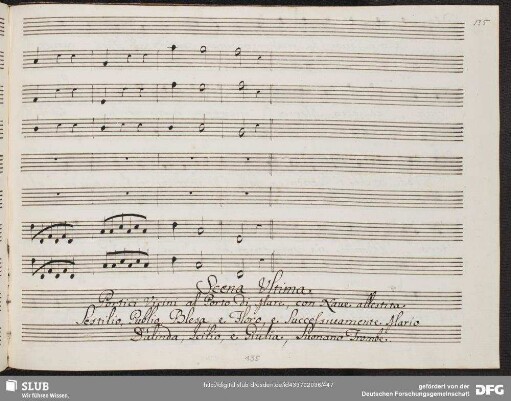 195
Scena Ultima.
Portici vicini al Porto di Mare, con Nave allestita.
Sestilio, Publio, Blesa, e Floro, e Successivamente Mario
Dalinda, Icilio, e Giulia, Suonano Trombe.
195
SLUB
Wir führen Wissen.
http://digital.slub-dresden.de/id433702036/447
gefördert von der
Deutschen Forschungsgemeinschaft
DFG